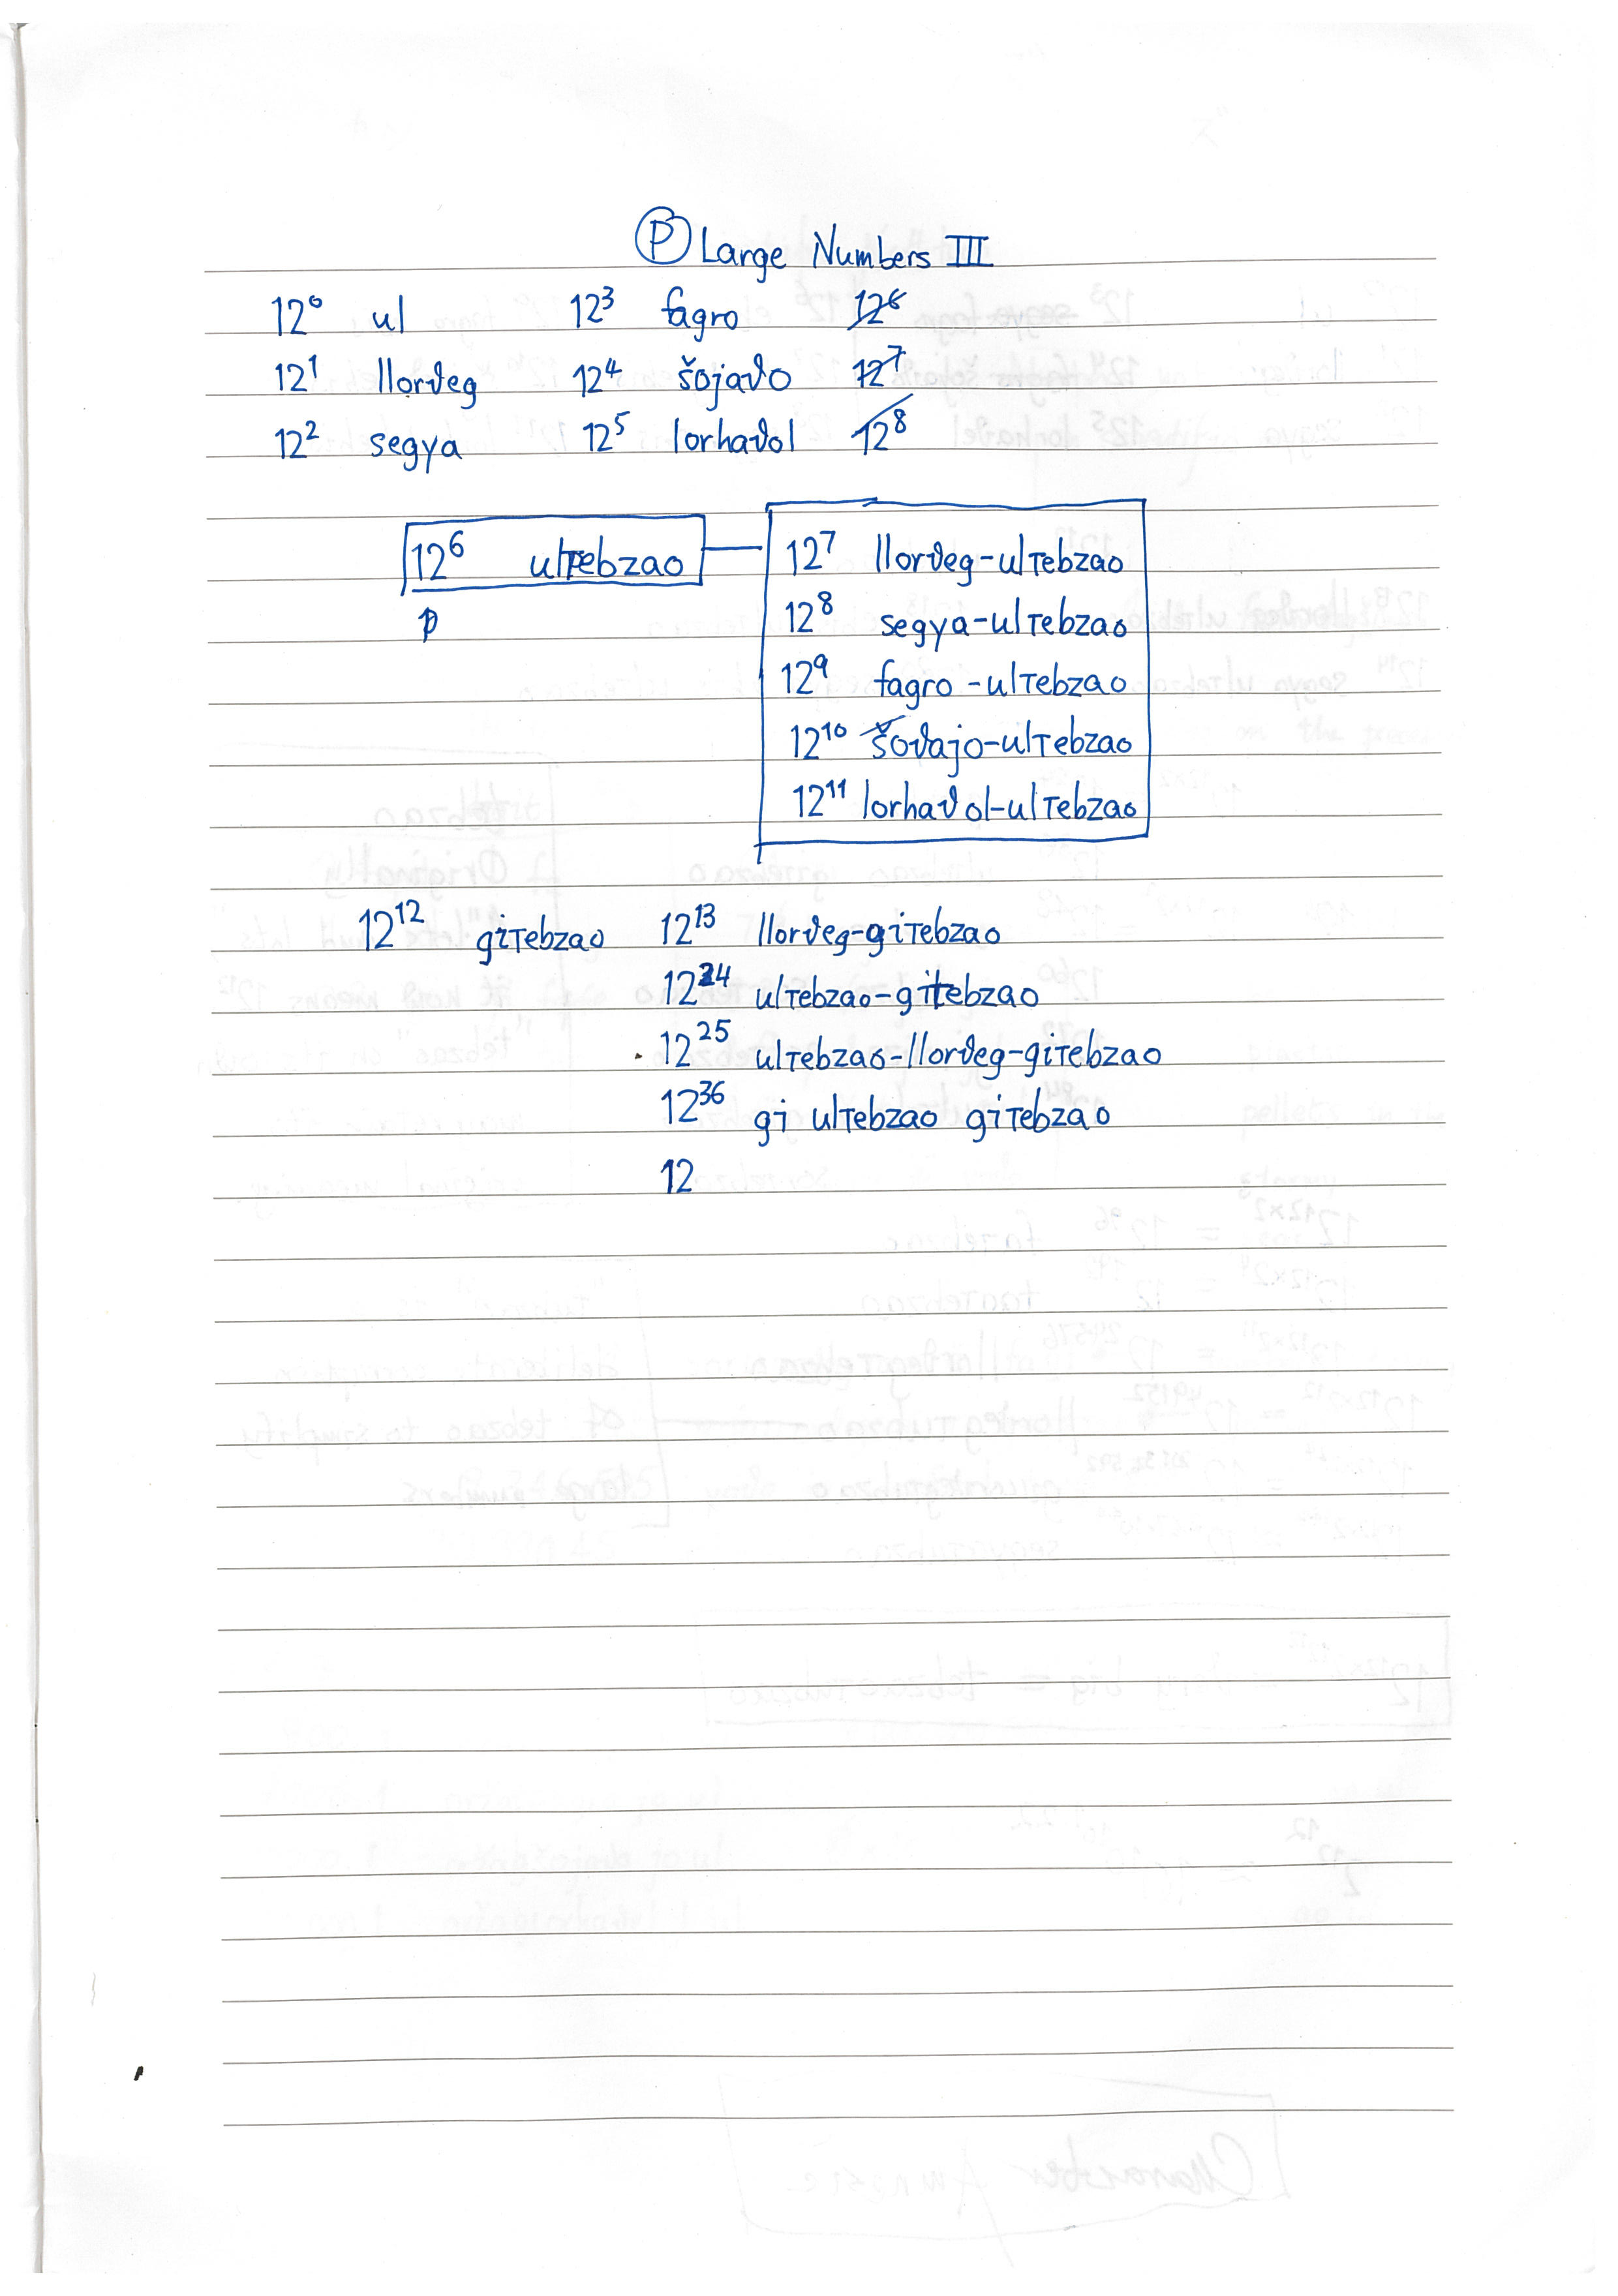 Ⓟ Large Numbers III
12⁰ ul 12³ fagro 12⁶
12¹ llorϑeg 12⁴ šojaϑo 12⁷
12² segya 12⁵ lorhaϑol 12⁸
12⁶ ulтebzao 12⁷ llorϑeg-ulтebzao
p 12⁸ segya-ulтebzao
12⁹ fagro-ulтebzao
12¹⁰ šoϑajo-ulтebzao
12¹¹ lorhaϑol-ulтebzao
12¹² giтebzao 12¹³ llorϑeg-giтebzao
12²⁴ ulтebzao-gitebzao
12²⁵ ulтebzao-llorϑeg-giтebzao
12³⁶ gi ulтebzao giтebzao
12